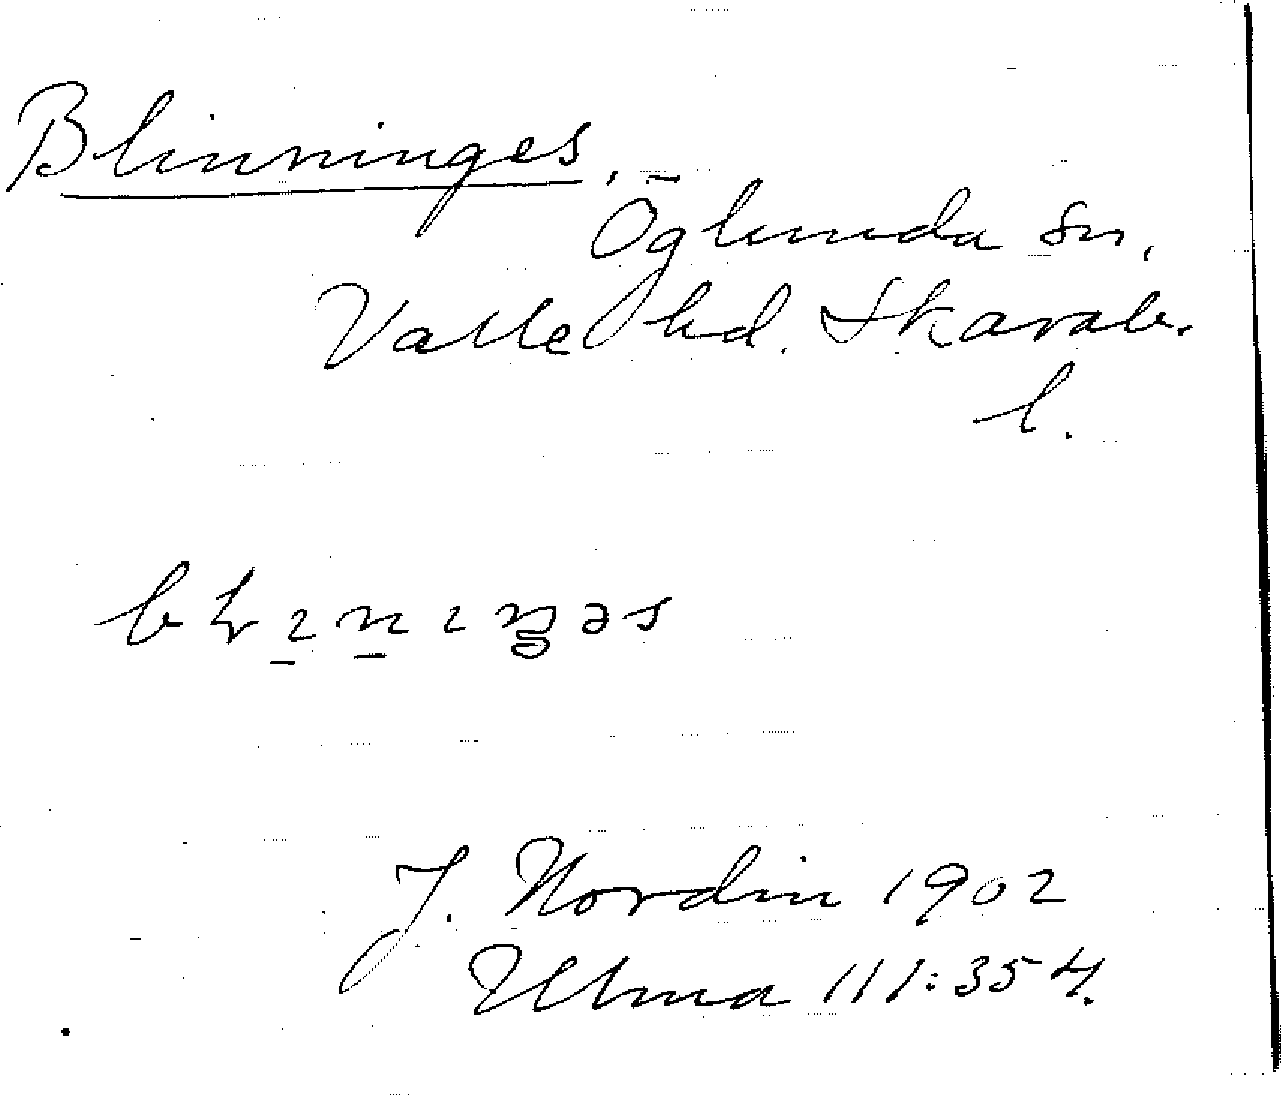 Blinninges.
Öglunda sn.
Valle hd. Skarab.
l.
J. Nordin 1902
Ulma 111:354.